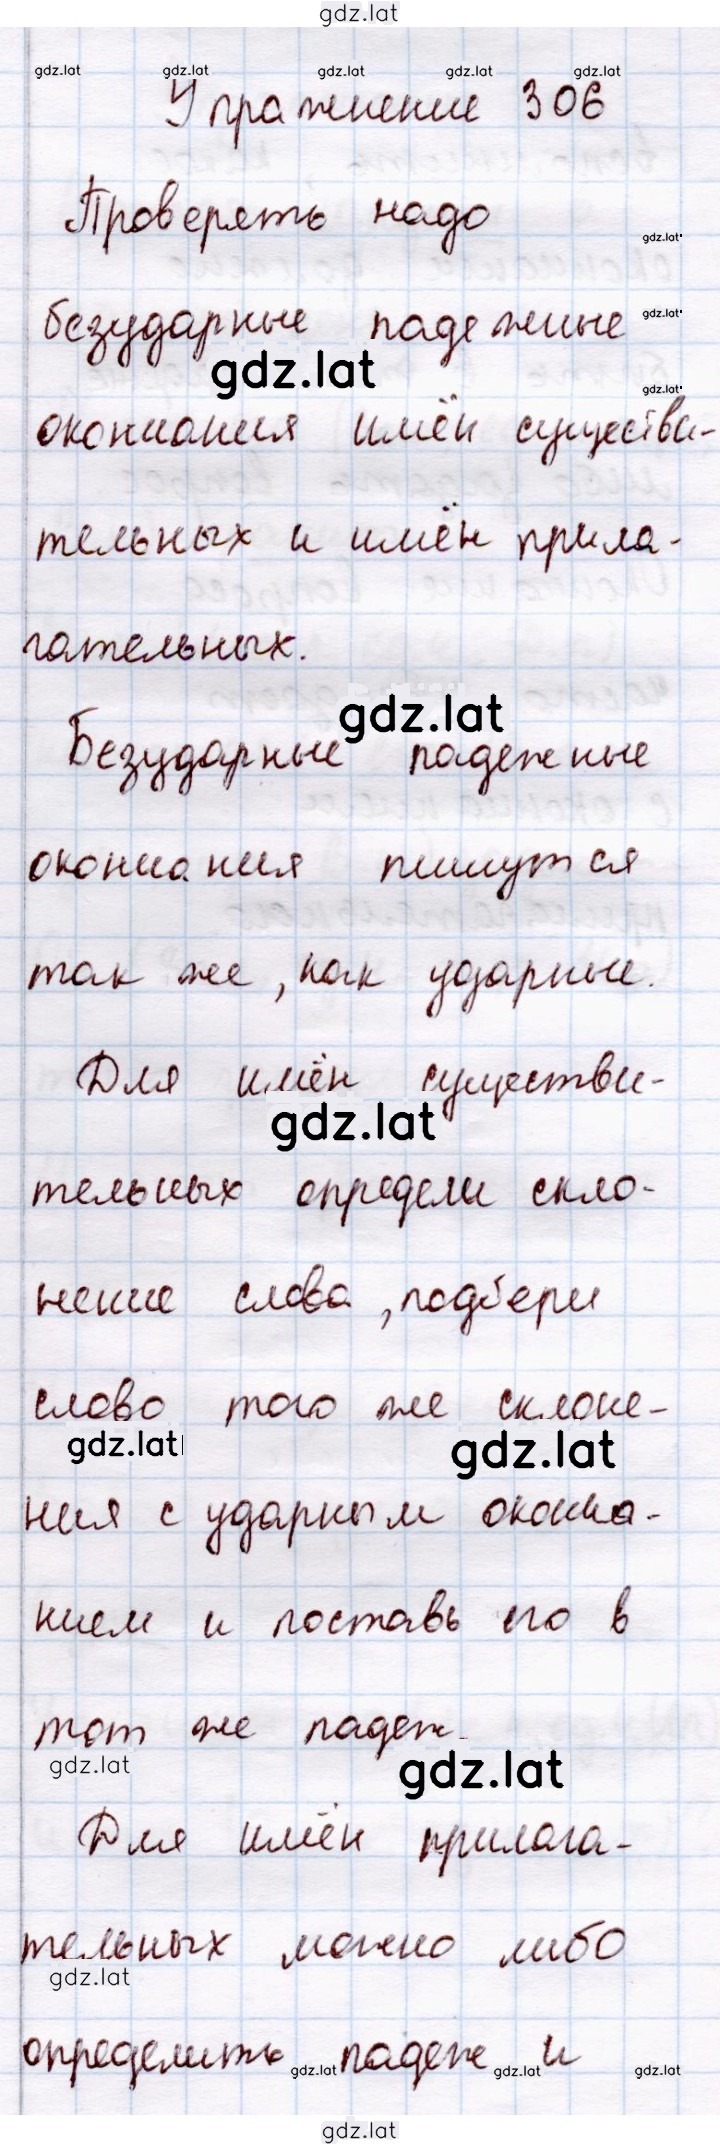 gdz.lat
gdz.lat gdz.lat gdz.lat gdz.lat gdz.lat
Упражнение 306
Проверять надо
gdz.lat
безударные падежные
gdz.lat
gdz.lat
gdz.lat
окончания имён существи-
тельных и имён прила-
гательных.
gdz.lat
Безударные падежные
окончания пишутся
так же, как ударные.
Для имён существи-
gdz.lat
тельных определи скло-
нение слова, подбери
слово того же склоне-
gdz.lat gdz.lat
ния с ударным оконча-
нием и поставь его в
тот же падеж.
gdz.lat gdz.lat
Для имён прилага-
тельных можно либо
gdz.lat
определить падеж и
gdz.lat gdz.lat gdz.lat
gdz.lat